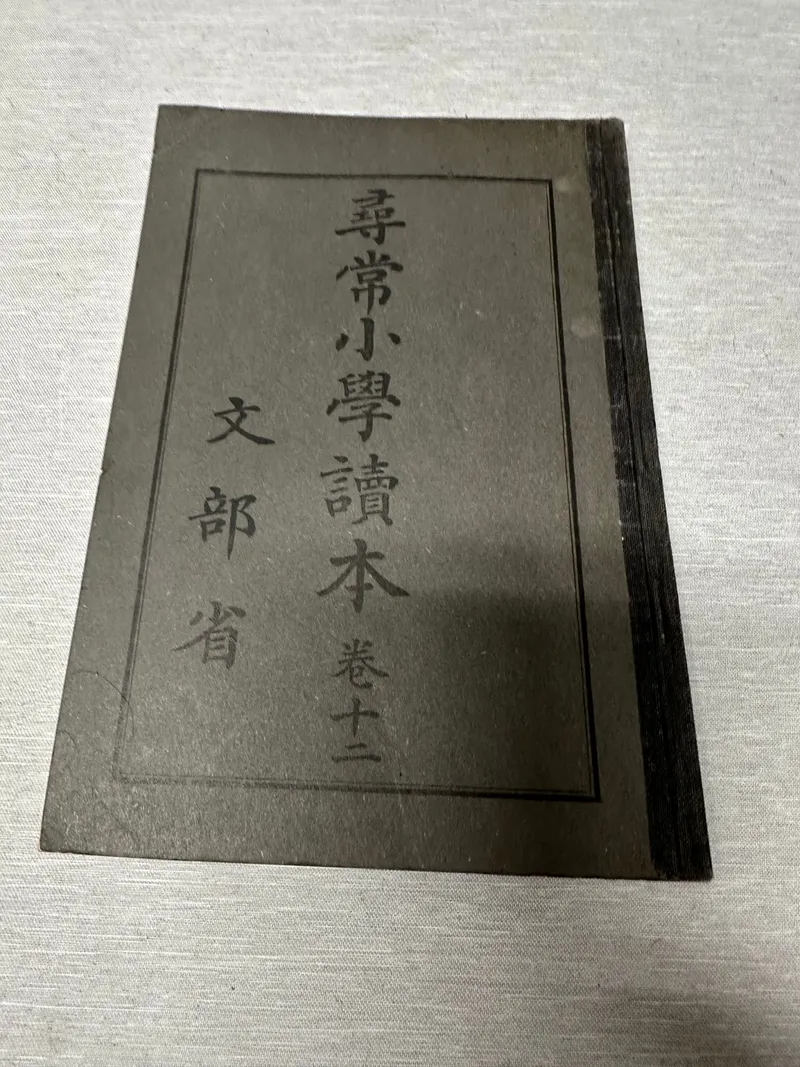 尋常小學讀本 卷十二
文部省